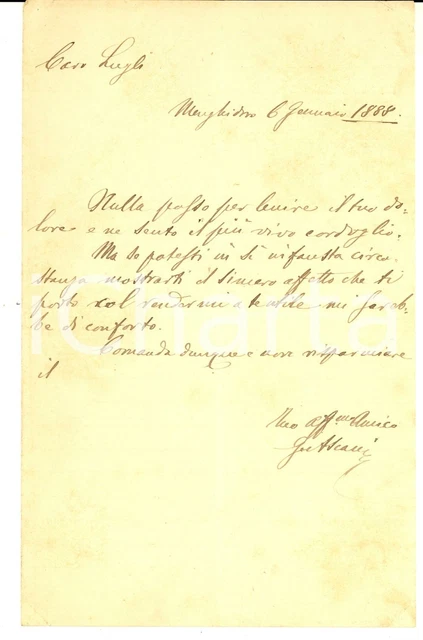 Caro Lugli
6 Gennaio 1888.
Nulla posso per lenire il tuo do=
lore e ne sento il più vivo cordoglio.
Ma se potessi in sì infausta circo
stanza mostrarti il sincero affetto che ti
porto col rendermi a te utile mi sareb=
be di conforto.
Comanda dunque e non risparmiare
il
Tuo aff.mo Amico